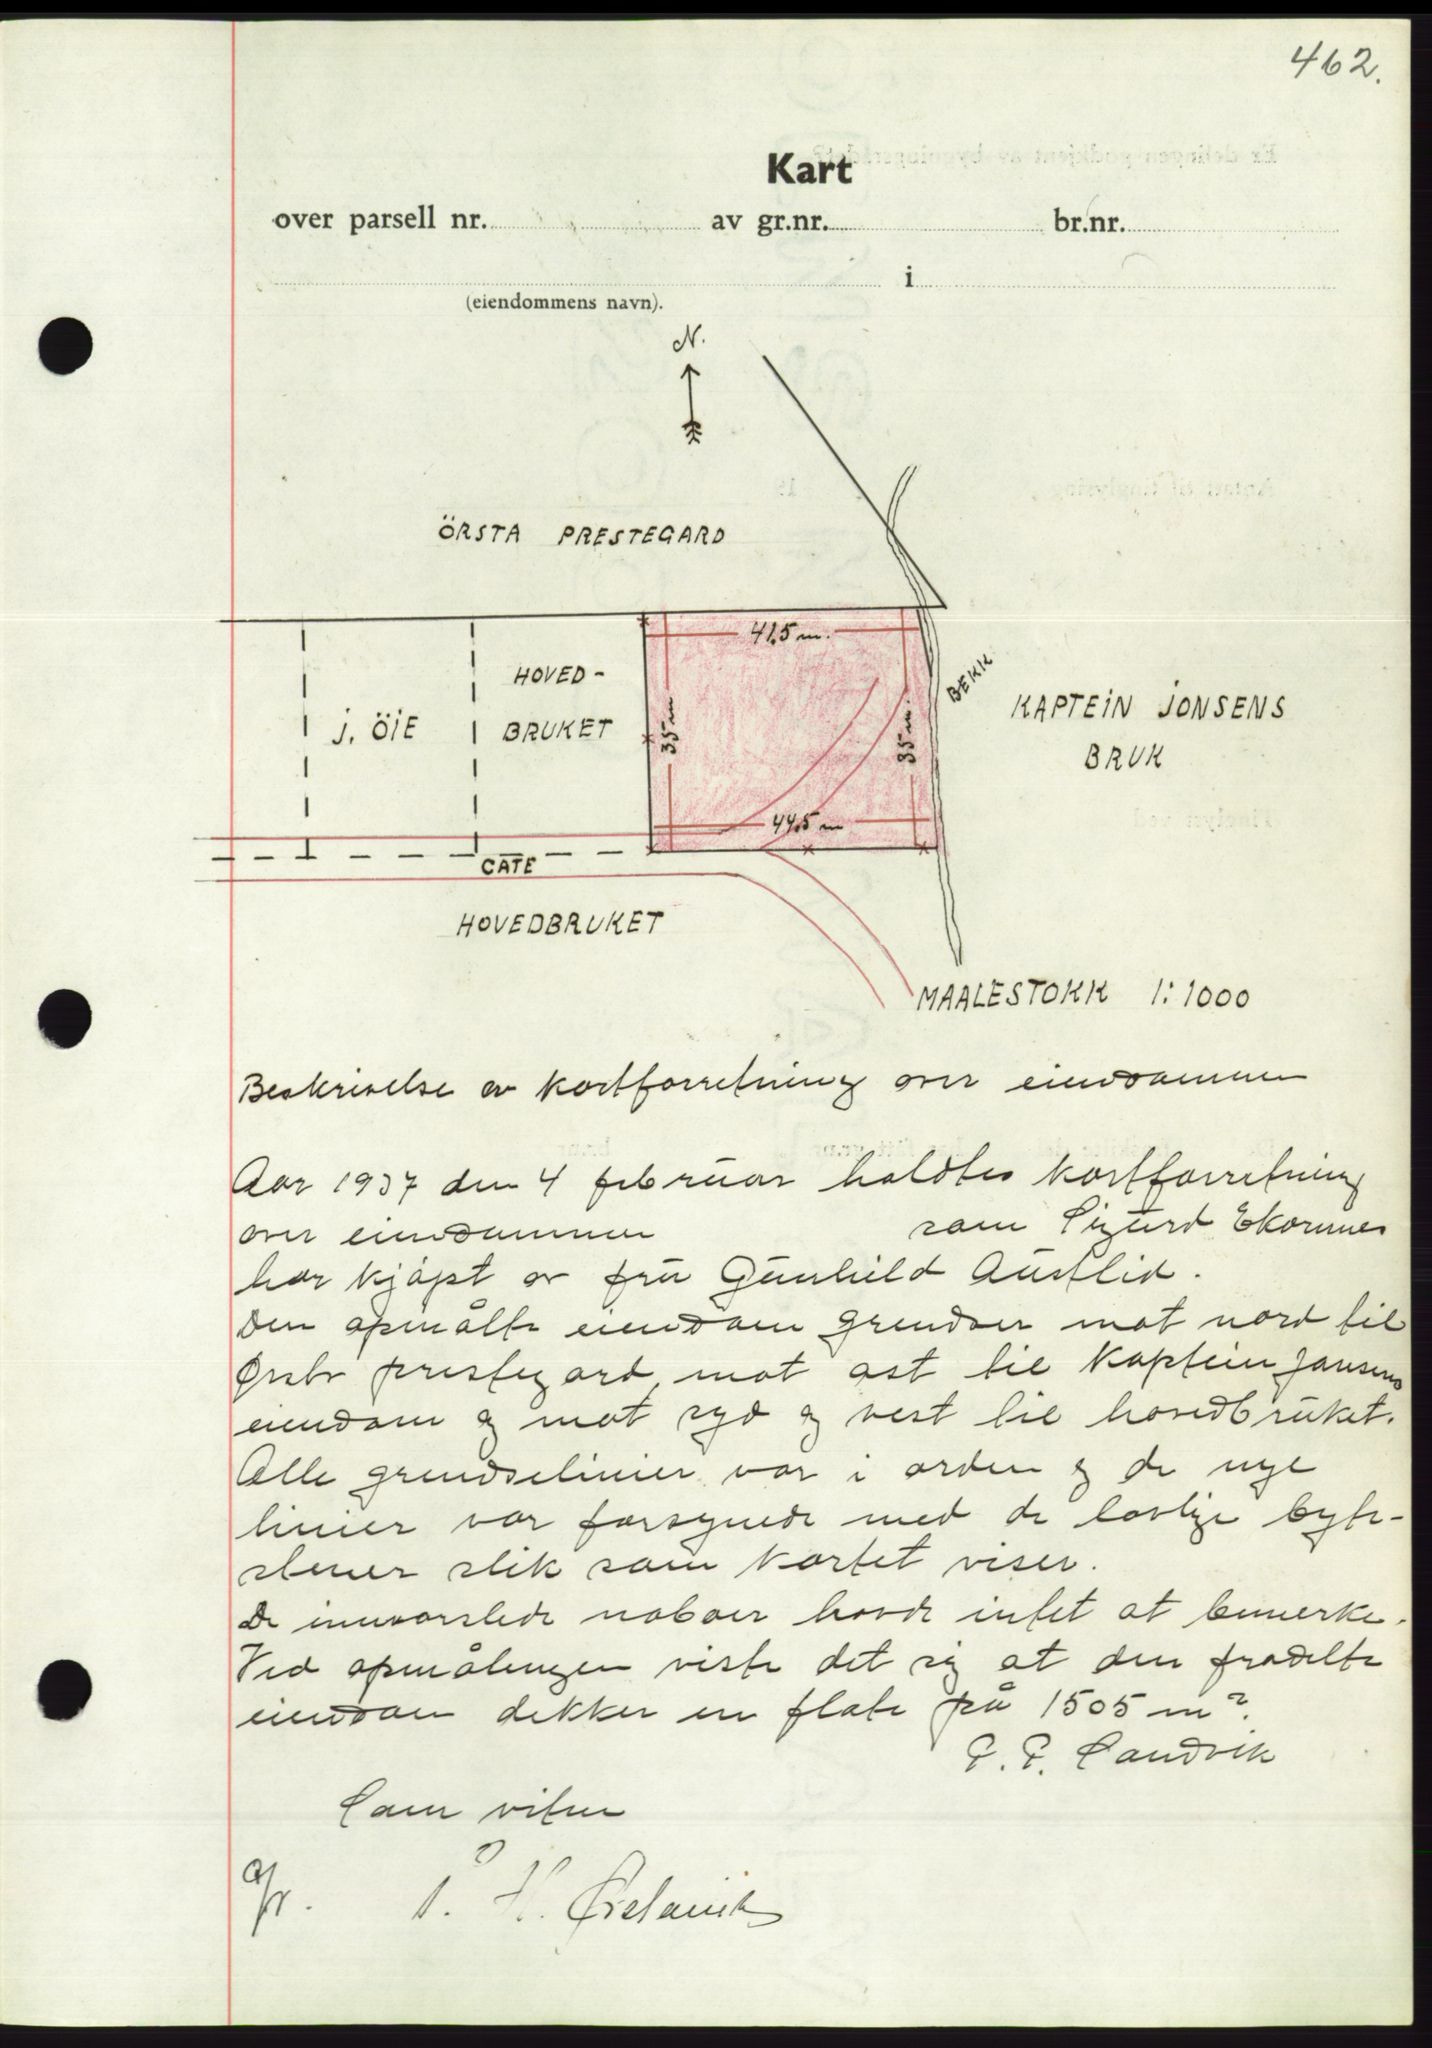 462.
Kart
over parsell nr. av gr.nr. br.nr.
i
(eiendommens navn).
N.
ÖRSTA PRESTEGARD
41,5 m.
HOVED-
BRUKET
J. ÖIE
35 m
35 m.
BEKK
KAPTEIN JONSENS
BRUK
44,5 m
GATE
HOVEDBRUKET
MAALESTOKK 1:1000
Beskrivelse av kartforretning over eiendommen
Aar 1937 den 4 februar holdtes kartforretning
over eiendommen som Sigurd Ekornnes
har kjøpt av fru Gunhild Austlid.
Den opmålte eiendom grendser mot nord til
Ørsta prestegard, mot øst til Kaptein Jonsens
eiendom og mot syd og vest til hovedbruket.
Alle grendselinier var i orden og de nye
linier var forsynede med de lovlige byte-
stener slik som kartet viser.
De innvarslede naboer havde intet at bemerke.
Ved opmålingen viste det sig at den fradelte
eiendom dekker en flate på 1505 m².
P. P. Sandvik
Som vitne